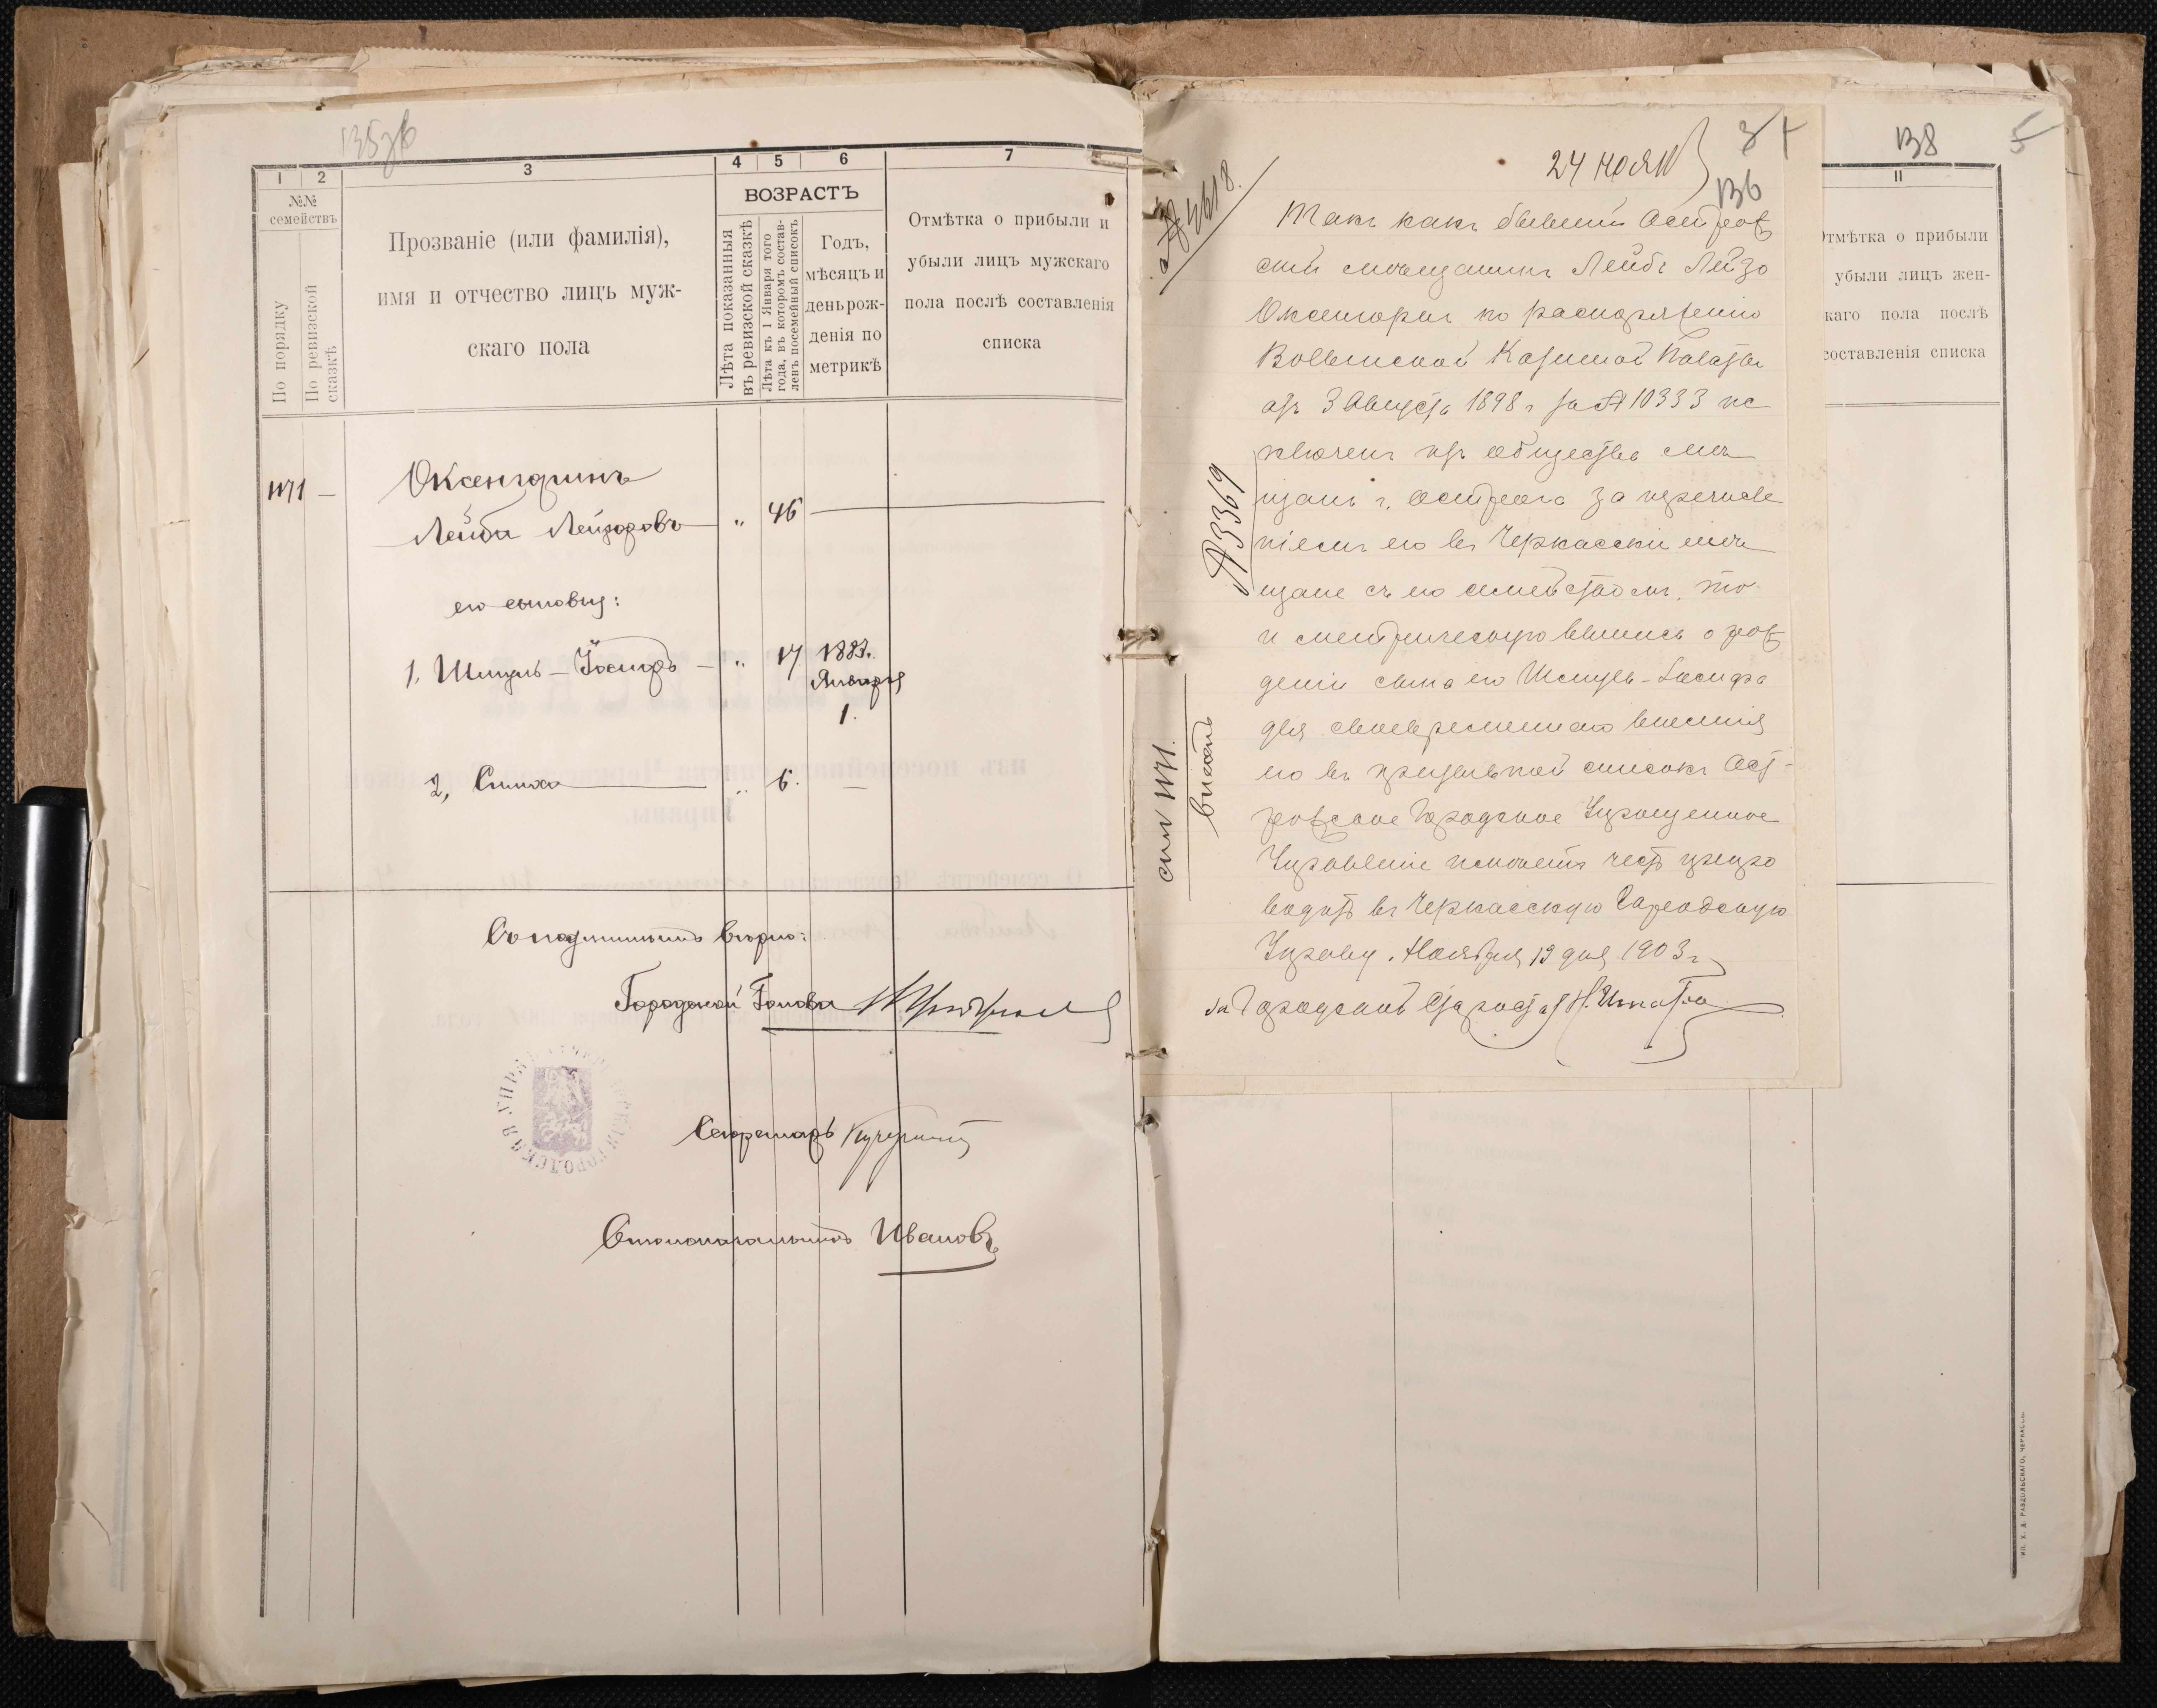 1 2 3 4 5 6 7
№№
семействъ
По порядку
По ревизской
сказкѣ
Прозваніе (или фамилія),
имя и отчество лицъ муж-
скаго пола
ВОЗРАСТЪ
Лѣта показанныя
въ ревизской сказкѣ
Лѣта къ 1 Января того
года, въ которомъ состав-
ленъ посемейный списокъ
Годъ,
мѣсяцъ и
день рож-
денія по
метрикѣ
Отмѣтка о прибыли и
убыли лицъ мужскаго
пола послѣ составленія
списка
1171 —
Оксенгорнъ
Лейба Лейзоровъ " 46
его сыновья:
1, Шмуль-Іосифъ — " 17 1883.
Января
1.
2, Симха " 6. —
Съ подлиннымъ вѣрно:
Городской Голова
Секретарь
Столоначальникъ Ивановъ
24 нояб
136
№ 4618.
Такъ какъ бывшій Острож
скій мѣщанинъ Лейбъ Лейзо
Оксенгорнъ по распоряженію
Волынской Казенной Палаты
отъ 3 Августа 1898 г за № 10333 ис
ключенъ изъ общества мѣ
щанъ г. Острога за перечисле
ніемъ его въ Черкасскіе мѣ
щане съ его семействомъ, то
и метрическую выпись о рож
деніи сына его Шмуль-Іосифа
для своевременнаго внесенія
его въ призывной списокъ Ост-
рожское Городское Упрощенное
Управленіе имѣетъ честь препро
водить въ Черкасскую Городскую
Управу. Ноября 19 дня 1903 г
За Городской Староста
№ 3369
сем 1171.
внесть
138
5
11
Отмѣтка о прибыли
убыли лицъ жен-
скаго пола послѣ
составленія списка